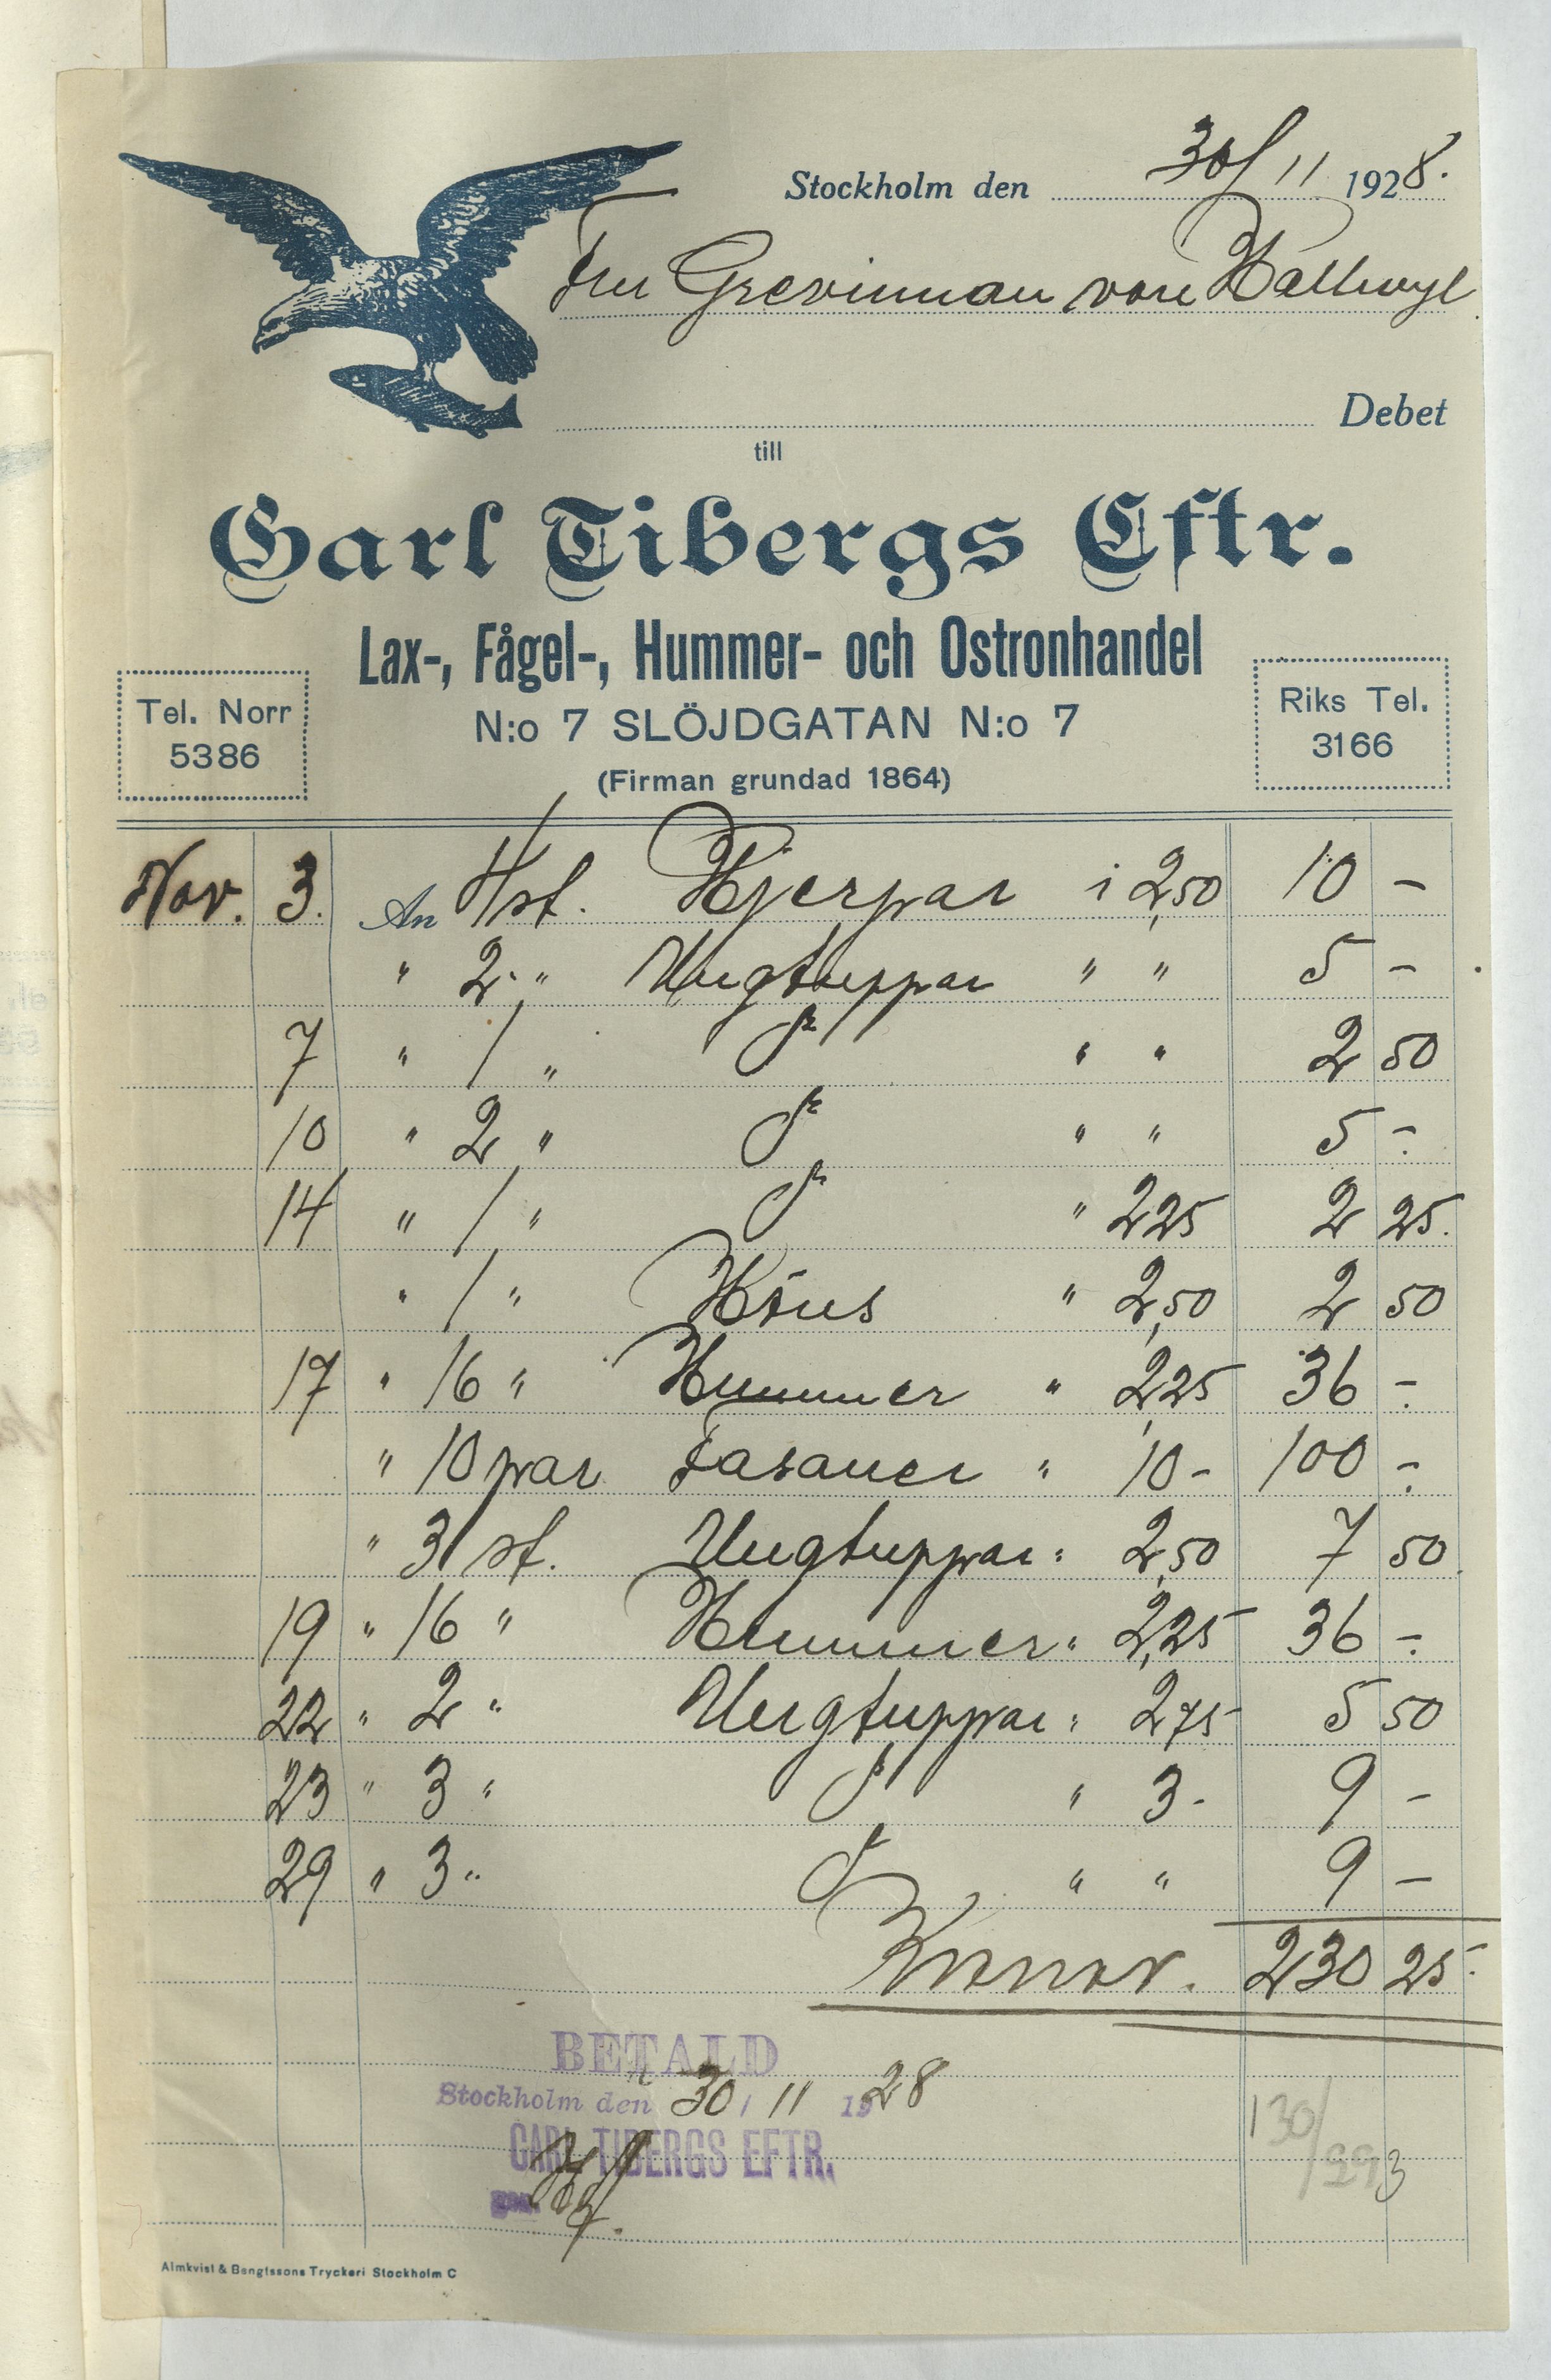 Stockholm den 30/11 1928.
Fru Grevinnan von Hallwyl
Debet
till
Carl Tibergs Eftr.
Lax-, Fågel-, Hummer- och Ostronhandel
Tel. Norr
5386
N:o 7 SLÖJDGATAN N:o 7
Riks Tel.
3166
(Firman grundad 1864)
Nov. 3. An 4 st. Hjerpar i 2,50 10 -
" 2 " Ungtuppar " " 5 -
7 " 1 " " " 2 50
10 " 2 " " " 5 -
14 " 1 " " 2 25 2 25.
" 1 " Höns " 2,50 2 50
17 " 16 " Hummer " 2,25 36 -
" 10 par Fasaner " 10 - 100 -
" 3 st. Ungtuppar " 2,50 7 50
19 " 16 " Hummer " 2,25 36 -
22 " 2 " Ungtuppar " 2 75 5 50
23 " 3 " " 3 - 9 -
29 " 3 " " " 9 -
Kronor. 230 25
BETALD
Stockholm den 30/11 1928
CARL TIBERGS EFTR.
130/
Almkvist & Bengtssons Tryckeri Stockholm C